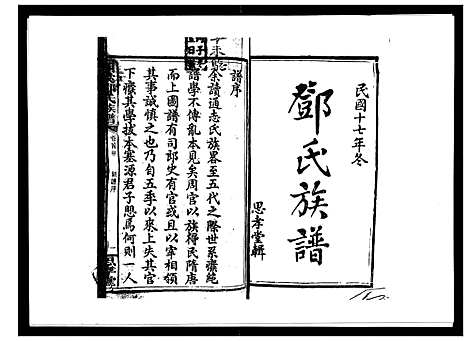 民國十七年冬
鄧氏族譜
思孝堂輯
譜序
余讀通志氏族畧至五代之際世系廢絶
譜學不傳亂本見矣周官以族得民隋唐
而上國譜有司郎史有官或且以宰相領
其事誠慎之也乃自五季以來上失其官
下癈其學拔本塞源君子愳焉何則一人